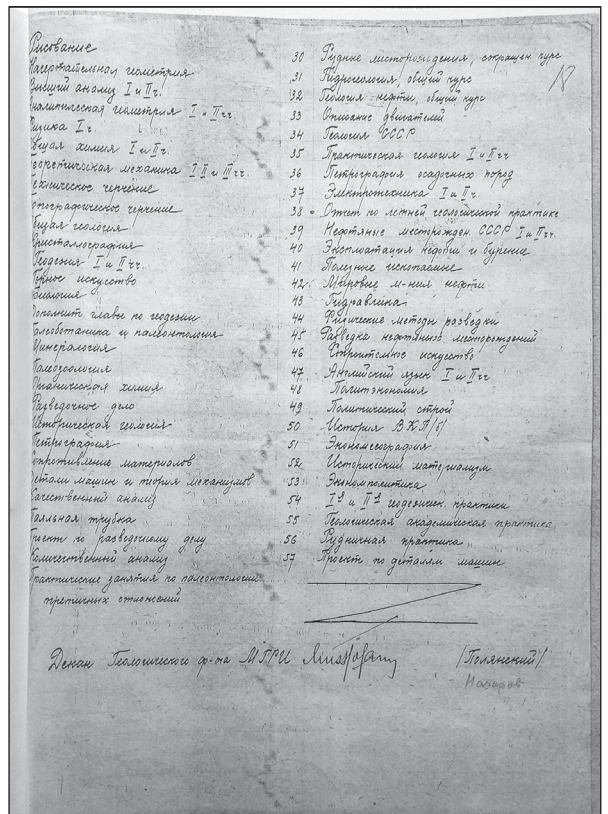 Рисование
Начертательная геометрия
Высший анализ I и II ч.
Аналитическая геометрия I и II чч.
Физика I ч.
Общая химия I и II ч.
Теоретическая механика I II и III чч.
Техническое черчение
Топографическое черчение
Общая геология
Кристаллография
Геодезия I и II чч.
Горное искусство
Биология
Дополнит главы по геодезии
Палеоботаника и палеонтология
Минералогия
Палеозоология
Органическая химия
Разведочное дело
Историческая геология
Петрография
Сопротивление материалов
Детали машин и теория механизмов
Качественный анализ
Паяльная трубка
Проект по разведочному делу
Количественный анализ
Практические занятия по палеонтологии
третичных отложений
30 Рудные месторождения, сокращен. курс
31 Гидрогеология общий курс
32 Геология нефти, общий курс
33 Описание двигателей
34 Геология СССР
35 Практическая геология I и II чч
36 Петрография осадочных пород
37 Электротехника I и II ч.
38 Отчет по летней геологической практике
39 Нефтяные месторожден. СССР I и II чч.
40 Эксплоатация нефти и бурение
41 Полезные ископаемые
42 Мировые м-ния нефти
43 Гидравлика
44 Физические методы разведки
45 Разведка нефтяных месторождений
46 Строительное искусство
47 Английский язык I и II чч
48 Политэкономия
49 Политический строй
50 История ВКП/б/
51 Экономгеография
52 Исторический материализм
53 Экономполитика
54 I-я и II-я геодезическ. практики
55 Геологическая академическая практика
56 Рудничная практика
57 Проект по деталям машин
18
Декан Геологического ф-та МГРИ /Полянский/
Назаров